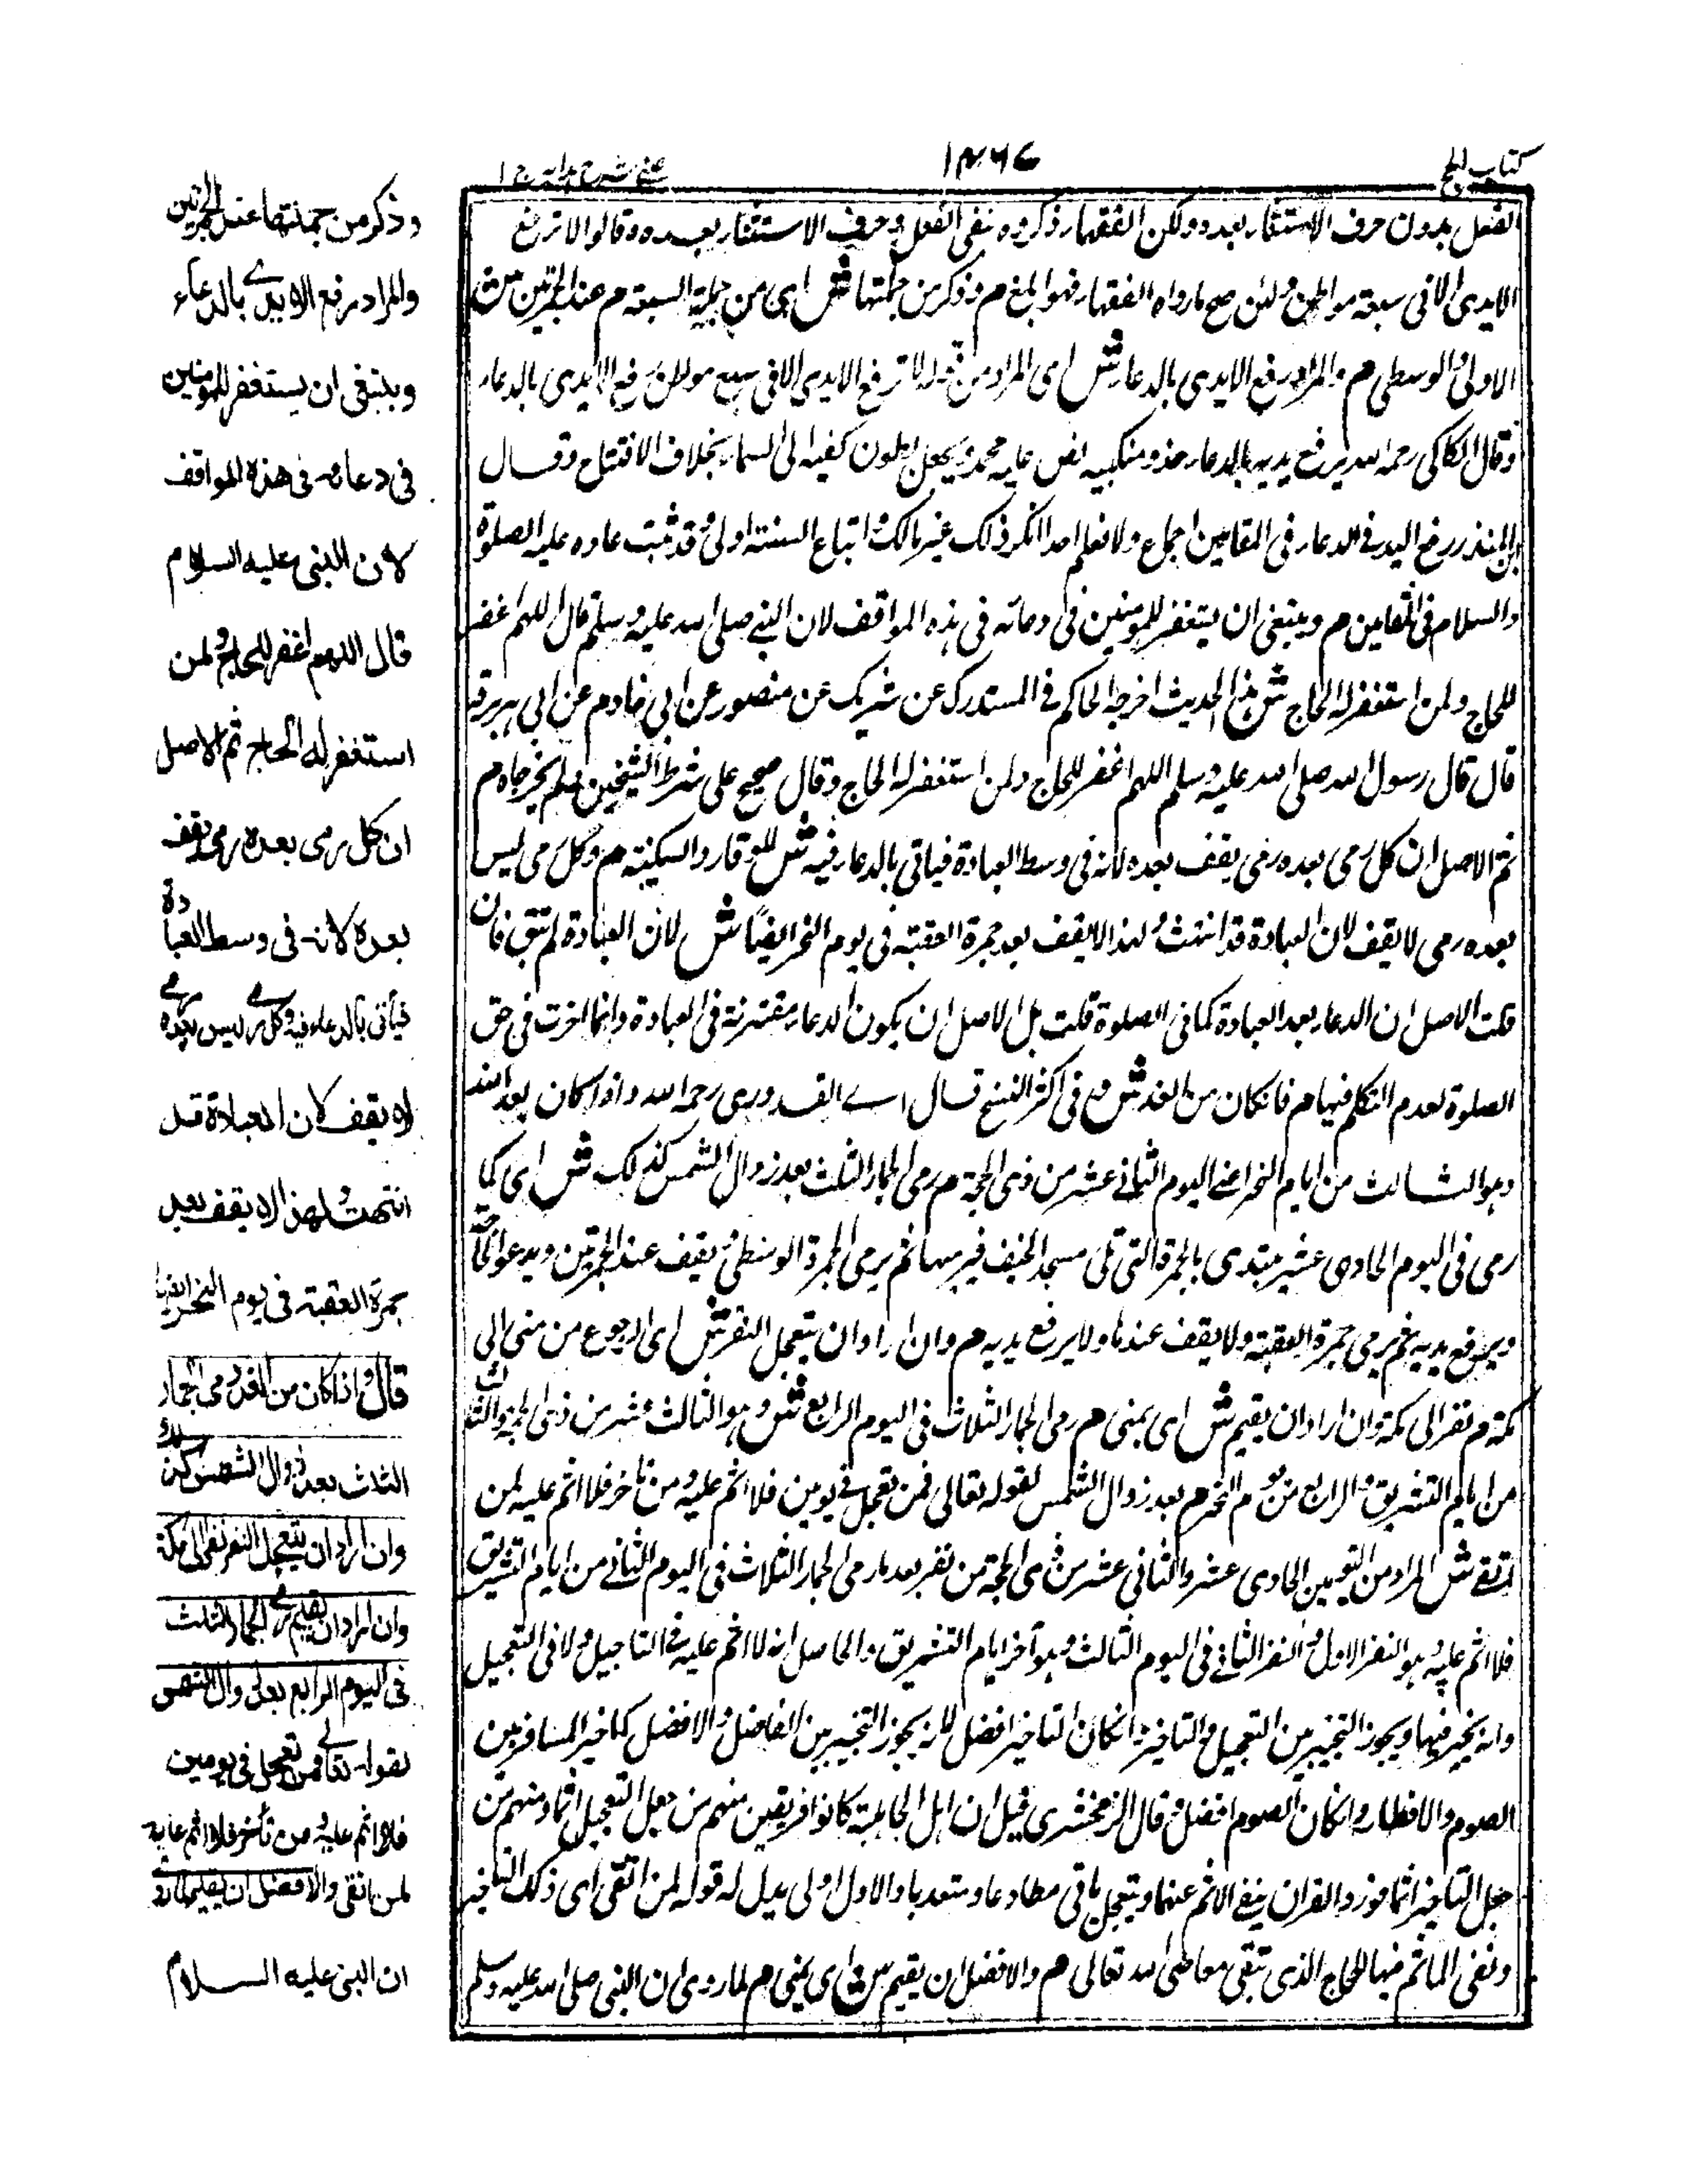 كتاب الحج
١٤٦٧
عينى شرح هدايه ج ١
الفعل بدون حرف الاستثناء بعده ولكن الفقهاء ذكروه نفى الفعل وحرف الاستثناء بعده وقالوا لا ترفع
الايدى الا فى سبعة مواطن ولئن صح ما رواه الفقهاء فهو ابلغ م وذكر من جملتها ش اى من جملة السبعة م عند الجمرتين ش
الاولى والوسطى م والمراد رفع الايدى بالدعاء ش اى المراد من قوله لا ترفع الايدى الا فى سبع مواطن رفع الايدى بالدعاء
وقال الكاكى رحمه الله يرفع يديه بالدعاء حذو منكبيه نص عليه محمد ويجعل بطون كفيه الى السماء بخلاف الافتتاح وقال
ابن المنذر رفع اليد فى الدعاء فى المقامين اجماع ولا نعلم احدا انكر ذلك غير مالك واتباع السنة اولى وقد ثبت عاده عليه الصلوة
والسلام فى المقامين م وينبغى ان يستغفر للمومنين فى دعائه فى هذه المواقف لان النبى صلى الله عليه وسلم قال اللهم اغفر
للحاج ولمن استغفر له الحاج ش هذا الحديث اخرجه الحاكم فى المستدرك عن شريك عن منصور عن ابى حازم عن ابى هريرة
قال قال رسول الله صلى الله عليه وسلم اللهم اغفر للحاج ولمن استغفر له الحاج وقال صحيح على شرط الشيخين ولم يخرجاه م
ثم الاصل ان كل رمى بعده رمى يقف بعده لانه فى وسط العبادة فياتى بالدعاء فيه ش للوقار والسكينة م وكل رمى ليس
بعده رمى لا يقف لان العبادة قد انتهت ولهذا لا يقف بعد جمرة العقبة فى يوم النحر ايضًا ش لان العبادة لم تبق فان
قلت الاصل ان الدعاء بعد العبادة كما فى الصلوة قلت بل الاصل ان يكون الدعاء مقترنة فى العبادة وانما اخرت فى حق
الصلوة لعدم التكلم فيها م فان كان من الغد ش وفى اكثر النسخ قال اے القدورى رحمه الله واذا كان بعد الغد
وهو الثالث من ايام النحر اعنى اليوم الثانى عشر من ذى الحجة م رمى الجمار الثلث بعد زوال الشمس كذلك ش اى كما
رمى فى اليوم الحادى عشر يبتدى بالجمرة التى تلى مسجد الخيف فيرميها ثم يرمى الجمرة الوسطى ويقف عند الجمرتين ويدعو
ويرفع يديه ثم يرمى جمرة العقبة ولا يقف عندها ولا يرفع يديه م وان اراد ان يتعجل النفر ش اى الرجوع من منى الى
مكة م نفر الى مكة وان اراد ان يقيم ش اى بمنى م رمى الجمار الثلاث فى اليوم الرابع ش وهو الثالث عشر من ذى الحجة والثالث
من ايام التشريق والرابع من يوم النحر م بعد زوال الشمس لقوله تعالى فمن تعجل فى يومين فلا اثم عليه ومن تاخر فلا اثم عليه لمن
اتقى ش المراد من اليومين الحادى عشر والثانى عشر من ذى الحجة من نفر بعد ما رمى الجمار الثلاث فى اليوم الثانى من ايام التشريق
فلا اثم عليه وهو النفر الاول والنفر الثانى فى اليوم الثالث وهو آخر ايام التشريق والحاصل انه لا اثم عليه فى التاجيل ولا فى التعجيل
وانه يخير فيها ويجوز التخيير بين التعجيل والتاخير وانكان التاخير افضل لانه يجوز التخيير بين الفاضل والافضل كما خير المسافر بين
الصوم والافطار وانكان الصوم افضل وقال الزمخشرى قيل ان اهل الجاهلية كانوا فريقين منهم من جعل التعجيل اثما ومنهم من
جعل التاخير اثما فورد القران بنفى الاثم عنهما ويتعجل ياتى مطاوعا ومتعديا والاول اولى يدل له قوله لمن اتقى اى ذلك التاخير
ونفى الماثم فيها للحاج الذى تتقى معاصى الله تعالى م والافضل ان يقيم ش اى بمنى م لما روى ان النبى صلى الله عليه وسلم
وذكر من جملتها عند الجمرتين
والمراد رفع الايدے بالدعاء
وينبغى ان يستغفر للمومنين
فى دعائه فى هذه المواقف
لان النبى عليه السلام
قال اللهم اغفر للحاج ولمن
استغفر له الحاج ثم الاصل
ان كل رمى بعده رمى يقف
بعده لانه فى وسط العبادة
فيأتى بالدعاء فيه وكل رمے ليس بعده رمے
لا يقف لان العبادة قد
انتهت ولهذا لا يقف بعد
جمرة العقبة فى يوم النحر ايضا
قال واذا كان من الغد رمى الجمار
الثلث بعد زوال الشمس كذلك
وان اراد ان يتعجل النفر نفر الى مكة
وان اراد ان يقيم رمے الجمار الثلث
فى اليوم الرابع بعد زوال الشمس
لقوله تعالى فمن تعجل فى يومين
فلا اثم عليه ومن تأخر فلا اثم عليه
لمن اتقى والافضل ان يقيم لما روى
ان النبى عليه السلام